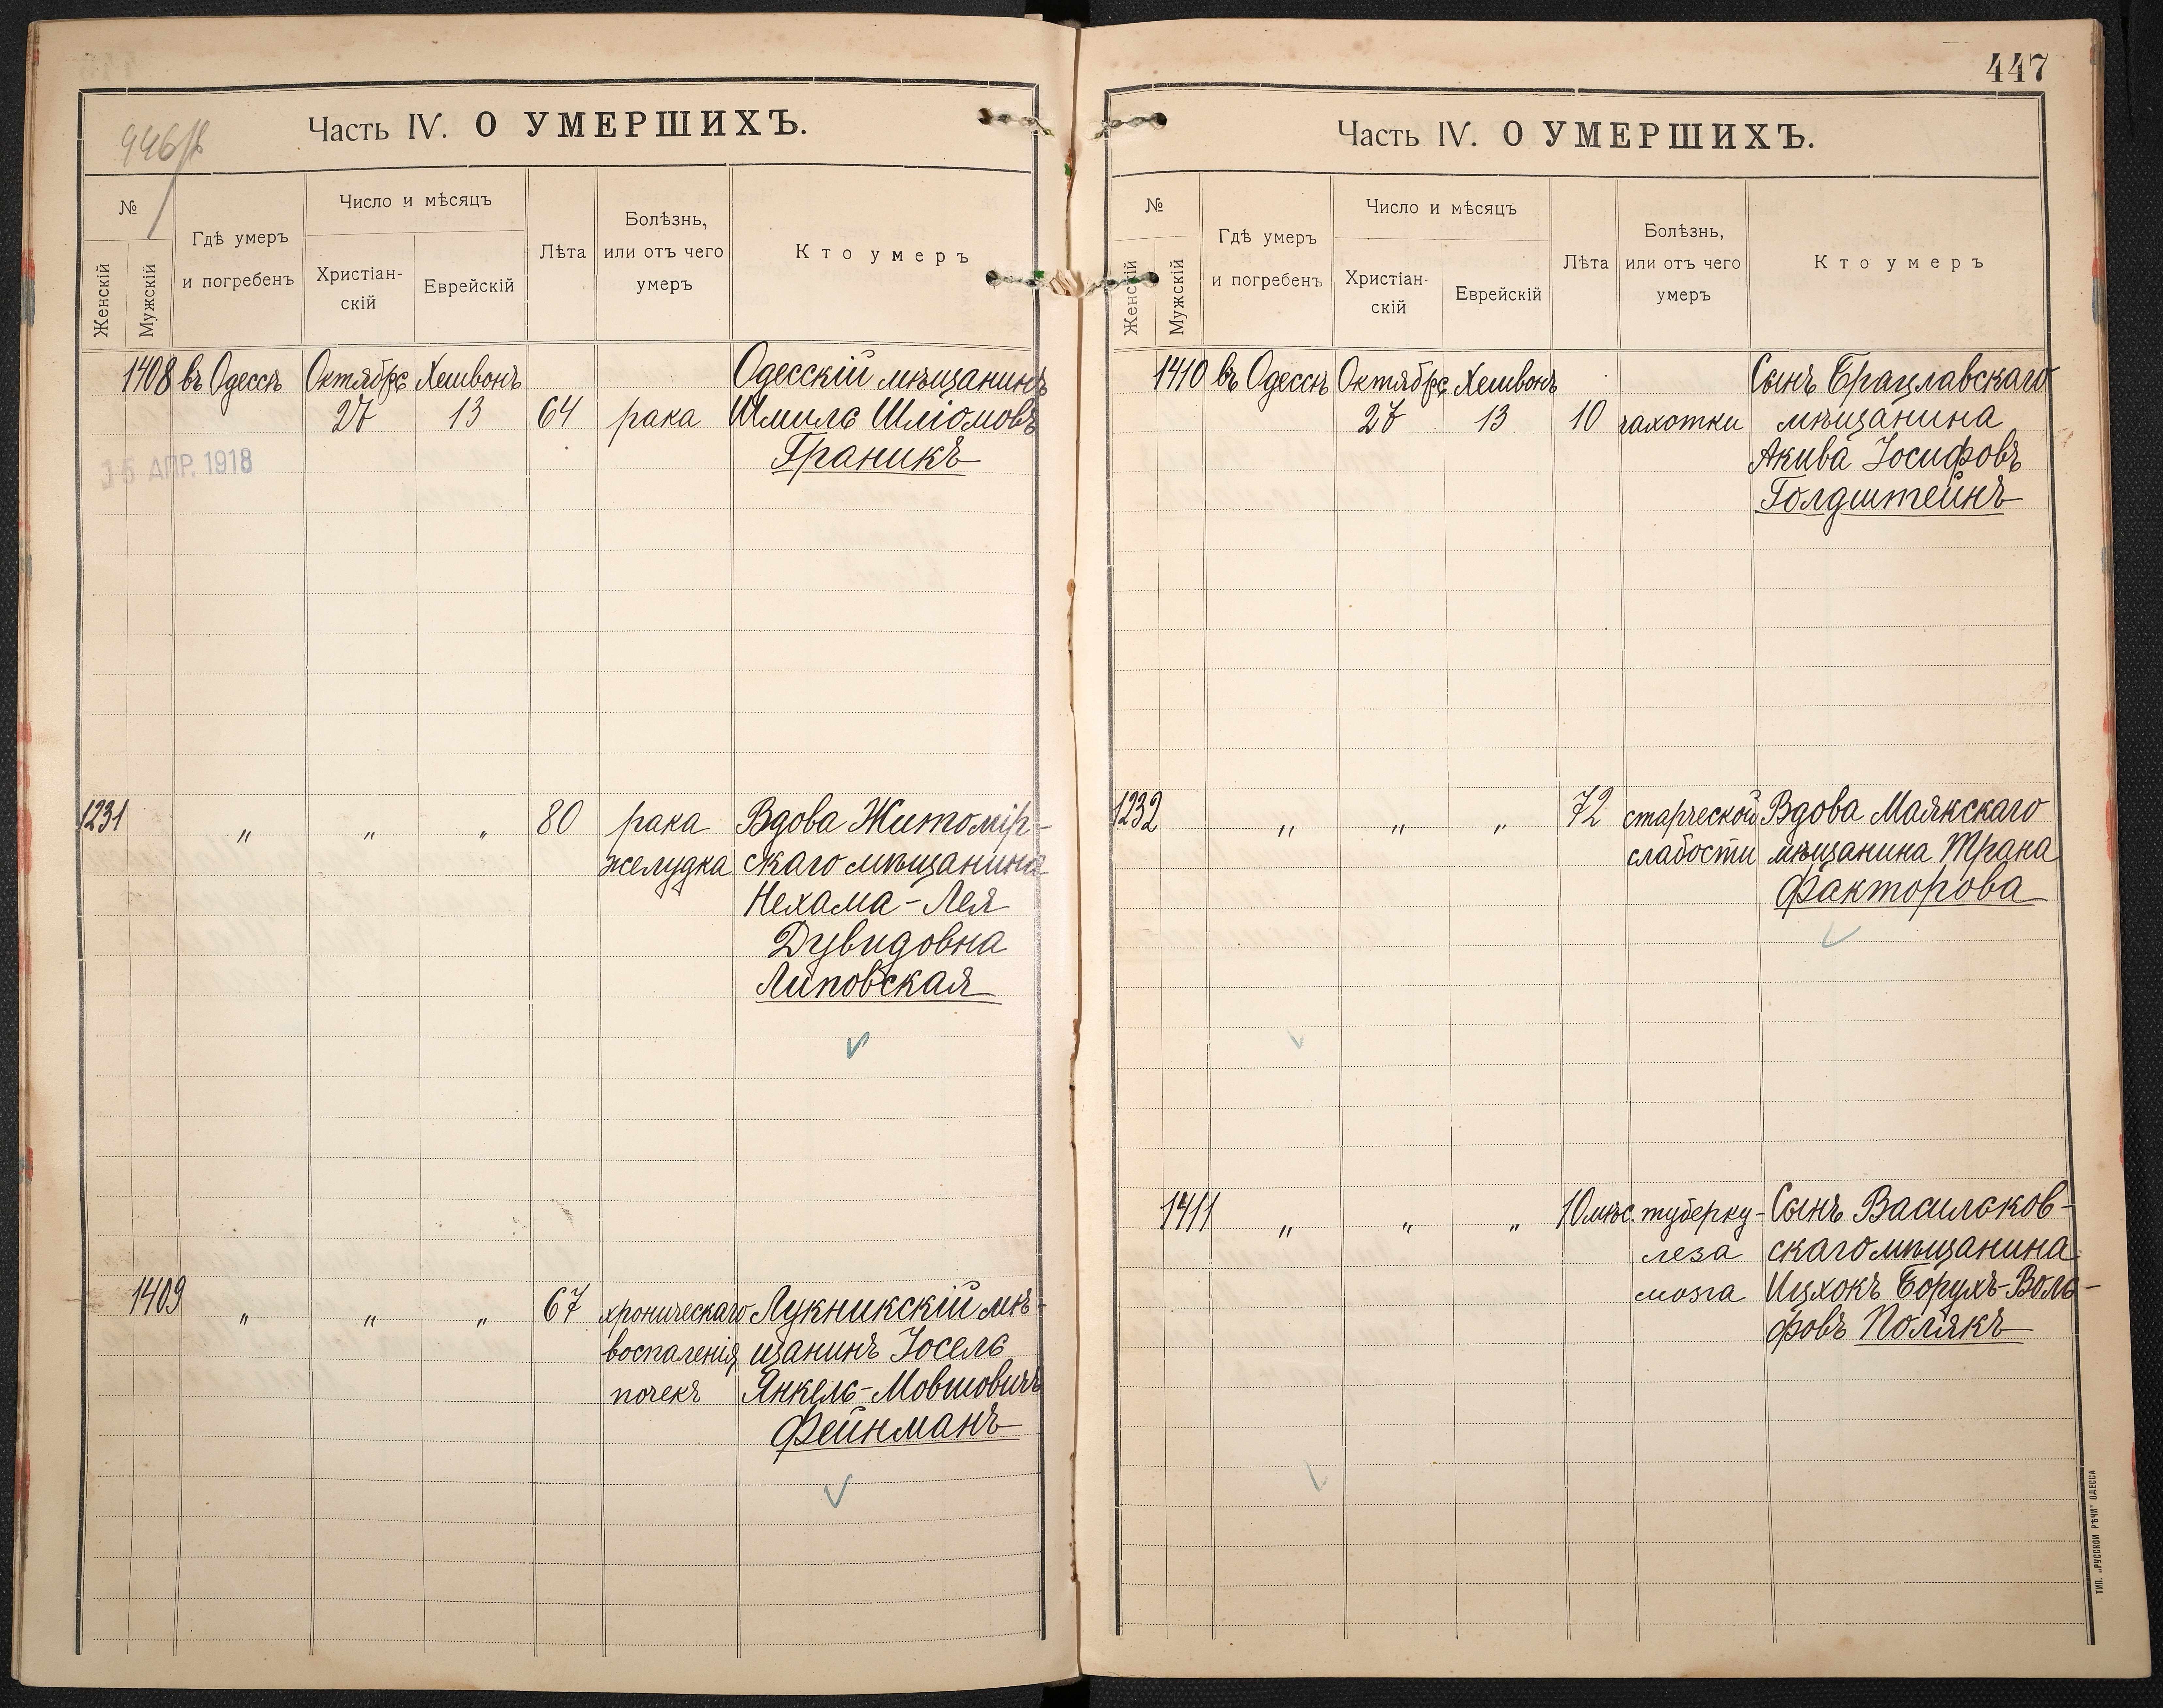 446 об
Часть IV. О УМЕРШИХЪ.
№
Женскій
Мужскій
Гдѣ умеръ
и погребенъ
Число и мѣсяцъ
Христіан-
скій
Еврейскій
Лѣта
Болѣзнь,
или отъ чего
умеръ
Кто умеръ
1408 въ Одессѣ Октябрь Хешвонъ Одесскій мѣщанинъ
27 13 64 рака Шмиль Шліомовъ
Граникъ
15 АПР. 1918
1231 " " " 80 рака Вдова Житомір-
желудка скаго мѣщанина
Нехама-Лея
Дувидовна
Липовская
1409 " " " 67 хроническаго Лукникскій мѣ-
воспаленія щанинъ Іосель
почекъ Янкель-Мовшовичъ
Фейнманъ
447
Часть IV. О УМЕРШИХЪ.
№
Женскій
Мужскій
Гдѣ умеръ
и погребенъ
Число и мѣсяцъ
Христіан-
скій
Еврейскій
Лѣта
Болѣзнь,
или отъ чего
умеръ
Кто умеръ
1410 въ Одессѣ Октябрь Хешвонъ Сынъ Брацлавскаго
27 13 10 чахотки мѣщанина
Акива Іосифовъ
Голдштейнъ
1232 " " " 72 старческой Вдова Маякскаго
слабости мѣщанина Трана
Факторова
1411 " " " 10 мѣс. туберку- Сынъ Васильков-
леза скаго мѣщанина
мозга Ицхокъ Борухъ-Воль-
фовъ Полякъ
ТИП. „РУССКОЙ РѢЧИ" ОДЕССА